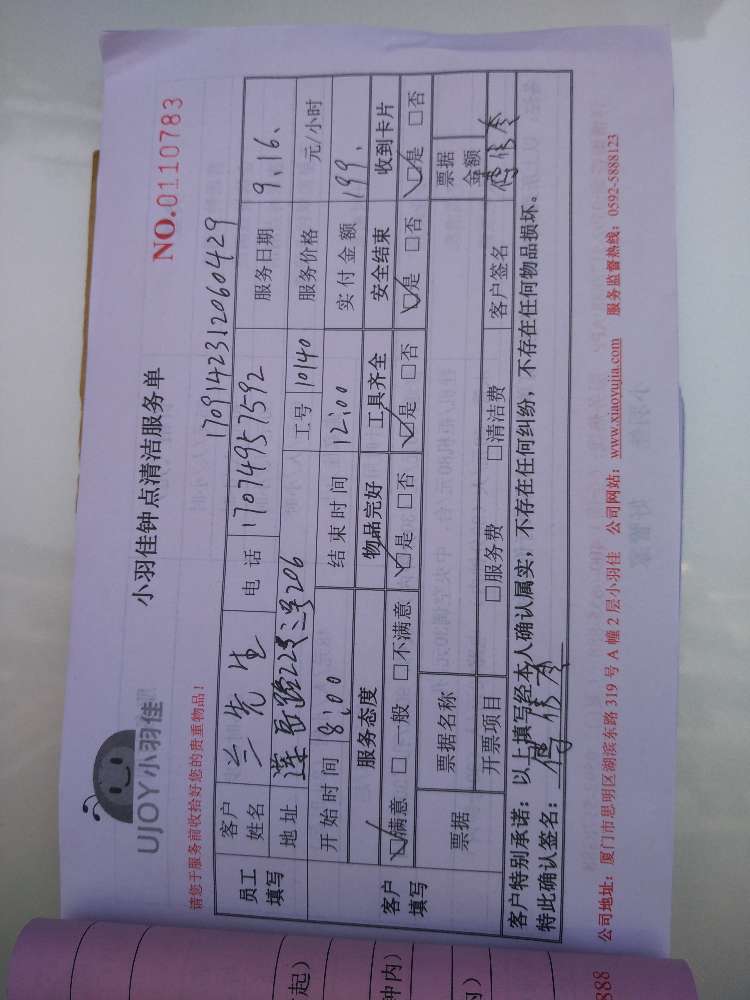 UJOY小羽佳
小羽佳钟点清洁服务单
NO.0110783
请您于服务前收拾好您的贵重物品！
1709142312060429
员工填写
客户姓名 兰先生 电话 17074957592 服务日期 9.16、
地址 莲岳路22号之 206 工号 10140 服务价格 元/小时
开始时间 8:00 结束时间 12:00 实付金额 199.
客户填写
服务态度 物品完好 工具齐全 安全结束 收到卡片
☑满意 □一般 □不满意 ☑是 □否 ☑是 □否 ☑是 □否 ☑是 □否
票据 票据名称 票据金额
开票项目 □服务费 □清洁费 客户签名
客户特别承诺：以上填写经本人确认属实，不存在任何纠纷，不存在任何物品损坏。
特此确认签名：
公司地址：厦门市思明区湖滨东路 319 号 A 幢 2 层小羽佳 公司网站：www.xiaoyujia.com 服务监督热线：0592-5888123
起）
钟内）
888